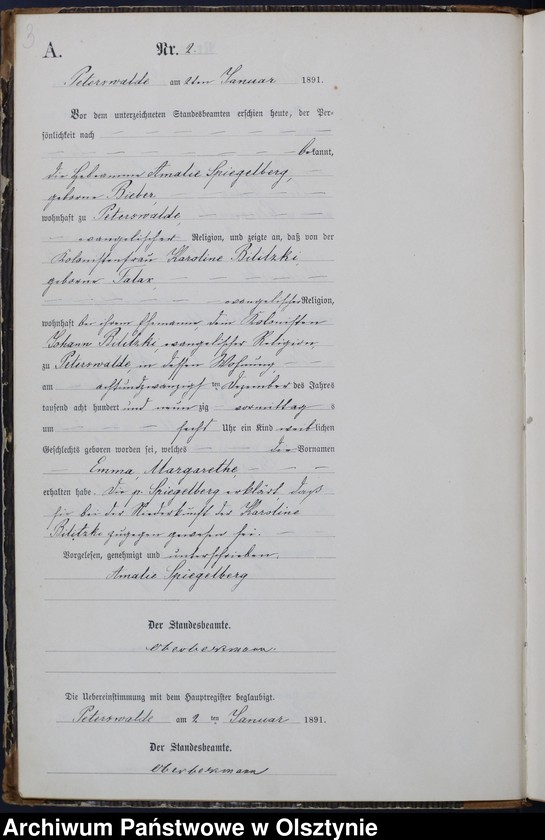 3
A.
Nr. 2
Peterswalde am 2ten Januar 1891.
Vor dem unterzeichneten Standesbeamten erschien heute, der Per-
sönlichkeit nach
bekannt,
die Hebamme Amalie Spiegelberg,
geborne Bieber,
wohnhaft zu Peterswalde,
evangelischer Religion, und zeigte an, daß von der
Kolonistenfrau Karoline Bilitzki,
geborne
evangelischer Religion,
wohnhaft bei ihrem Ehemanne, dem Kolonisten
Johann Bilitzki, evangelischer Religion,
zu Peterswalde in dessen Wohnung
am achtundzwanzigsten Dezember des Jahres
tausend acht hundert und neunzig vormittags
um sechs Uhr ein Kind weiblichen
Geschlechts geboren worden sei, welches die Vornamen
Emma, Margarethe,
erhalten habe. Die p. Spiegelberg erklärt, daß
sie bei der Niederkunft der Karoline
Bilitzki zugegen gewesen sei.
Vorgelesen, genehmigt und unterschrieben.
Amalie Spiegelberg
Der Standesbeamte.
Die Uebereinstimmung mit dem Hauptregister beglaubigt.
Peterswalde am 2ten Januar 1891.
Der Standesbeamte.
Archiwum Państwowe w Olsztynie